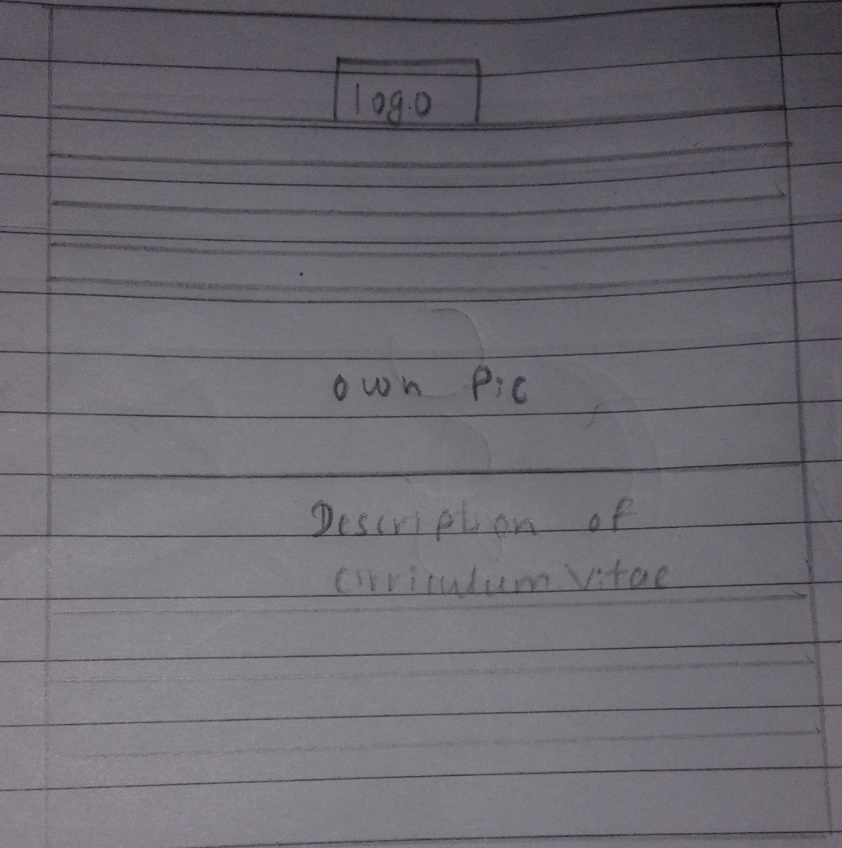 logo
own Pic
Description of
Cirriculum Vitae